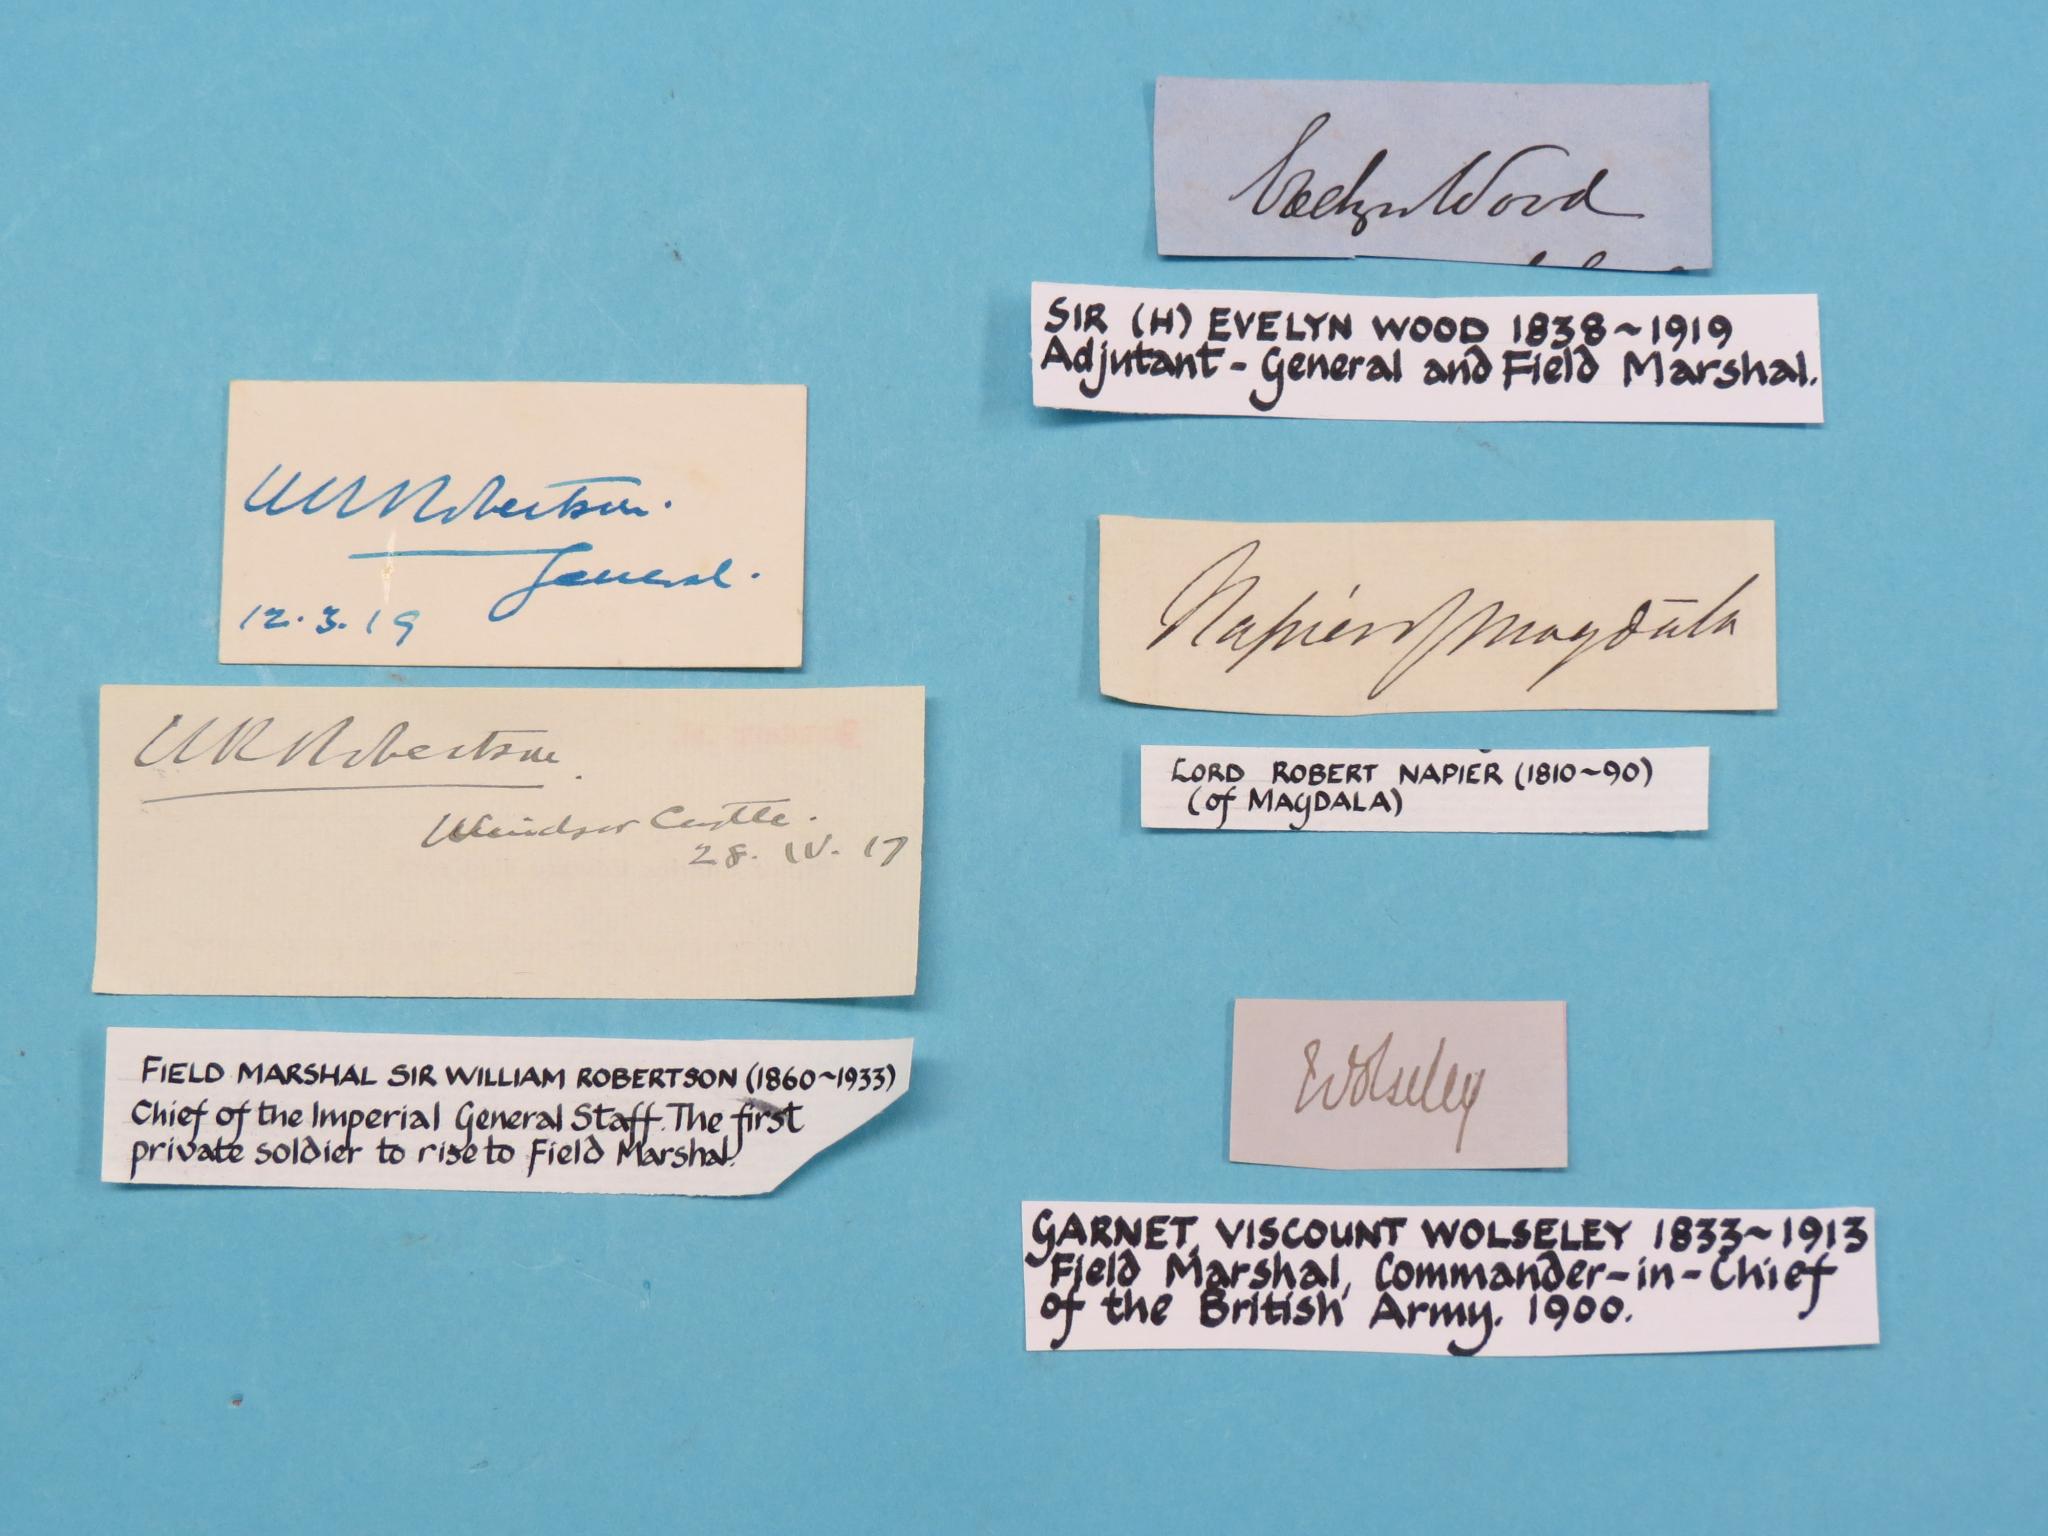 WR Robertson.
General.
12.3.19
WR Robertson.
Windsor Castle.
28. IV. 17
FIELD MARSHAL SIR WILLIAM ROBERTSON (1860~1933)
Chief of the Imperial General Staff. The first
private soldier to rise to Field Marshal.
Evelyn Wood
SIR (H) EVELYN WOOD 1838~1919
Adjutant-General and Field Marshal.
Napier of Magdala
LORD ROBERT NAPIER (1810~90)
(of MAGDALA)
Wolseley
GARNET, VISCOUNT WOLSELEY 1833~1913
Field Marshal, Commander-in-Chief
of the British Army. 1900.